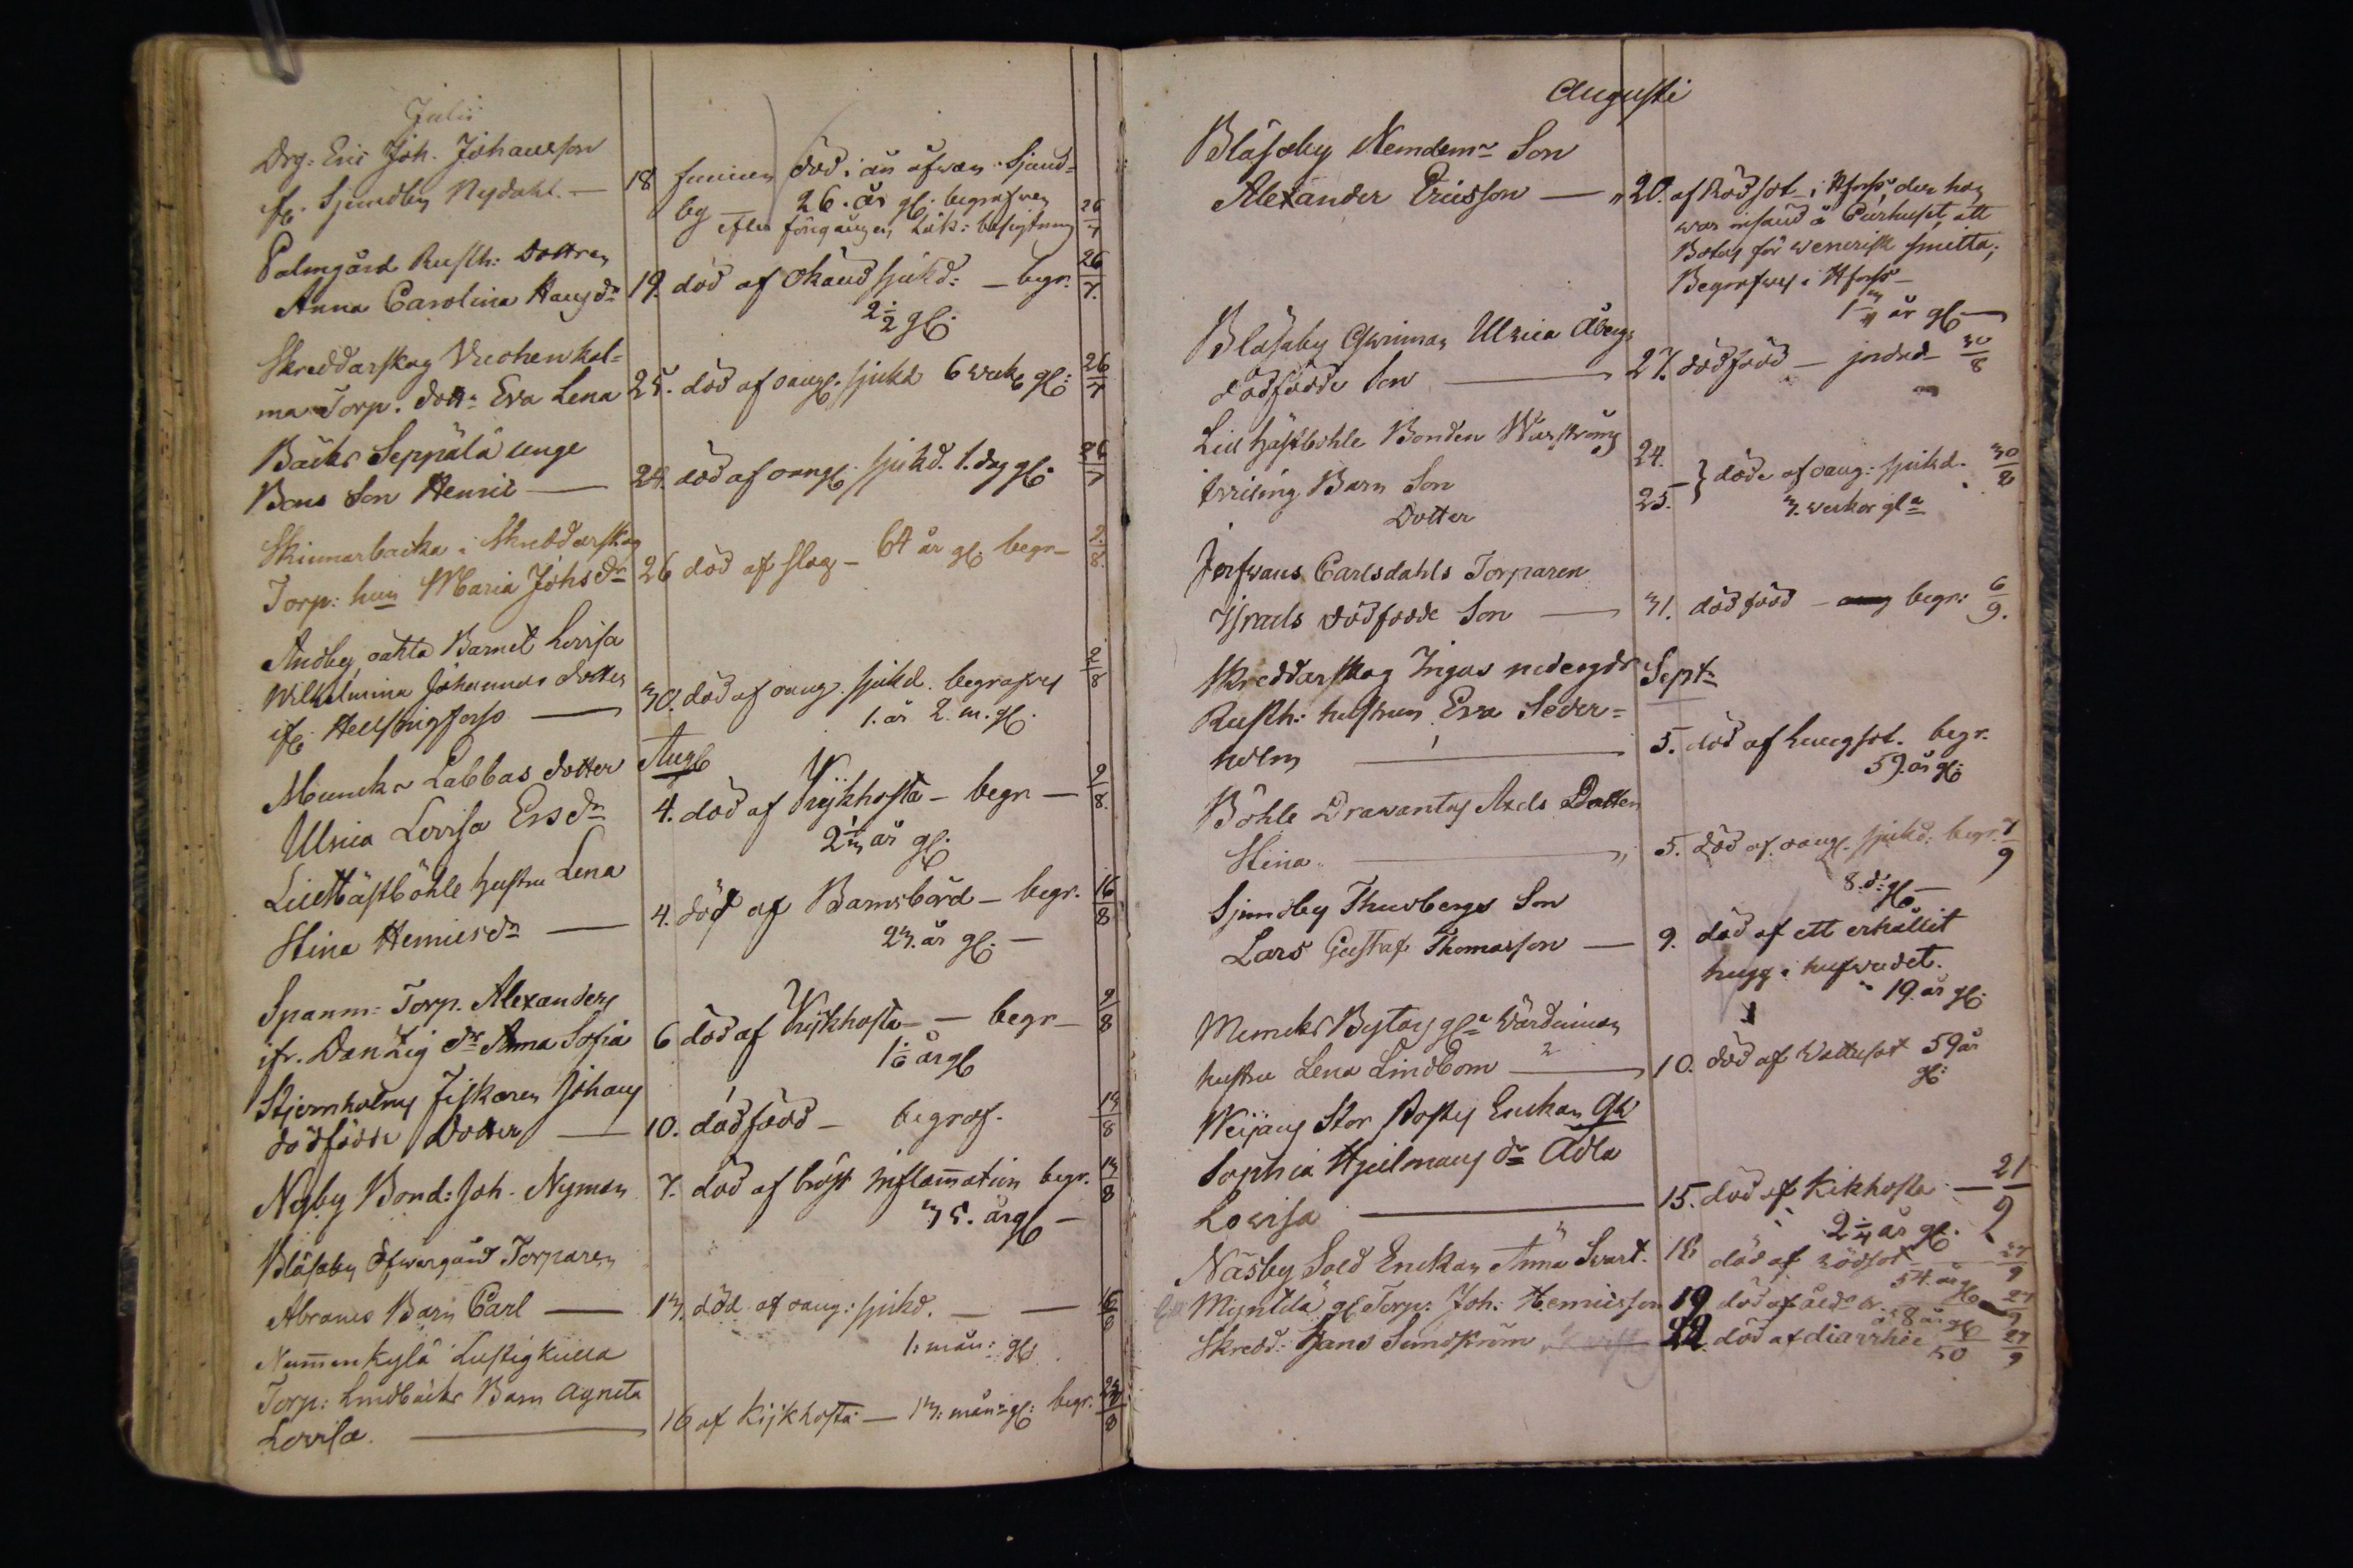 Julii
Drg: Eric Joh. Johansson
fr. Sjundby Nydahl. — 18 funnen död i ån ofwan Sjund=
by — 26. år gl. begrafwen 26/7
efter föregången Läk: besigtning
Palmgård Rusth: Dottren
Anna Carolina Hansdr 19. död af okänd sjukd: — begr. 26/7.
2 1/2 gl.
Skreddarskog
ma Torp. dottr Eva Lena 25. död af oangl. sjukd 6 weck gl: 26/7
Bäcks Seppälä unge
Bons Son Henric — 24. död af oangl. sjukd. 1. dag gl. 26/7
Skinnarbacka i Skreddarskog
Torp: hun Maria Johsdr 26 död af slag — 64 år gl. begr — 2/8.
Andby oäkta Barnet Lovisa
Wilhelmina Johannes dotter 30. död af oang. sjukd. begrafven 2/8
fr. Helsingfors — 1. år 2. m. gl.
Muncks Labbas dotter Aug
Ulrica Lovisa Ersdr 4. död af Kijkhosta — begr — 9/8.
2 1/3 år gl.
Lill Hästböhle hustru Lena
Stina Henricsdr — 4. död af Barnsbörd — begr. 16/8
23. år gl. —
Spanm: Torp. Alexanders
fr. Danzig dr Anna Sofia 6 död af Kijkhosta — — begr — 9/8
år gl
Stjernholms Fiskaren Johans
dödfödde Dotter — 10. dödfödd — begraf. 13/8
Nyby Bond: Joh. Nyman 7. död af bröst inflamation begr. 13/8
35. år gl —
Blåsaby Öfwergård Torparen
Abrams Barn Carl — 13. död af oang: sjukd. — —
1. mån: gl.
Nummenkylä Lustigkulla
Torp: Lindbäcks Barn Agneta
Lovisa. — 16 af Kijkhosta — 13: mån: gl: begr.
Augusti
Blåsaby Nemdemr Son
Alexander Ericsson — 20. af Rödsot i Hfors der han
war insänd å Curhuset att
Botas för wenerisk smitta;
Begrafven i Hfors —
år gl —
Blåsaby Qwinnan Ulrica Åbergs
dödfödde Son — 27. dödfödd — jordad — 30/8
Lill Hästböhle Bonden Wärströms 24.
twilling Barn Son 25. } döde af oang: sjukd. 30/8
Dotter 3. weckor gla
Jerfwans Carlsdahls Torparen
Israels dödfödde Son — 31. död född — begr: 6/9.
Skreddarskog Ingas nedergds Septr
Rusth: hustrun Eva Seder=
holm — 5. död af lungsot. begr.
59. år gl:
Böhle Drawantas Axels Dotter
Stina — 5. död af oangl. sjukd: begr. 7/9
8. d: gl —
Sjundby Thusbergs Son
Lars Gustaf Thomasson — 9. död af ett erhållit
hugg i hufwudet.
19. år gl.
Muncks Bytas gla Värdinnan
hustru Lena Lindbom — 10. död af Wattusot 59 år
gl:
Weijans Stor Bostes Enckan
Sophia Hjelmans dr Adla
Lowisa — 15. död af Kikhosta — 21/9
2 1/4 år gl.
Näsby Sold Enckan Anna Svart. 18 död af rödsot — 27/9
54. år gl
Myntilä gl Torp: Joh: Henricsson 19 död af åldr 27/9
år gl
Skredd: Hans Sundström 22. död af diarrhie 50 27/9